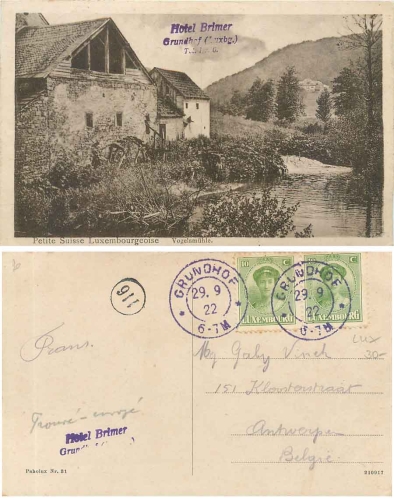 Hotel Brimer
Grundhof (Luxbg.)
Petite Suisse Luxembourgeoise Vogelsmühle.
116
GRUNDHOF
29. 9
22
6-7M
GRUNDHOF
29. 9
22
6-7M
10 C
LUXEMBOURG
LUXEMBOURG
LUX
30-
Frans.
Mej Gaby Vinck
151 Kloosterstraat
Antwerpen
België
Trouvé - envoyé
Hotel Brimer
Pakolux Nr. 21